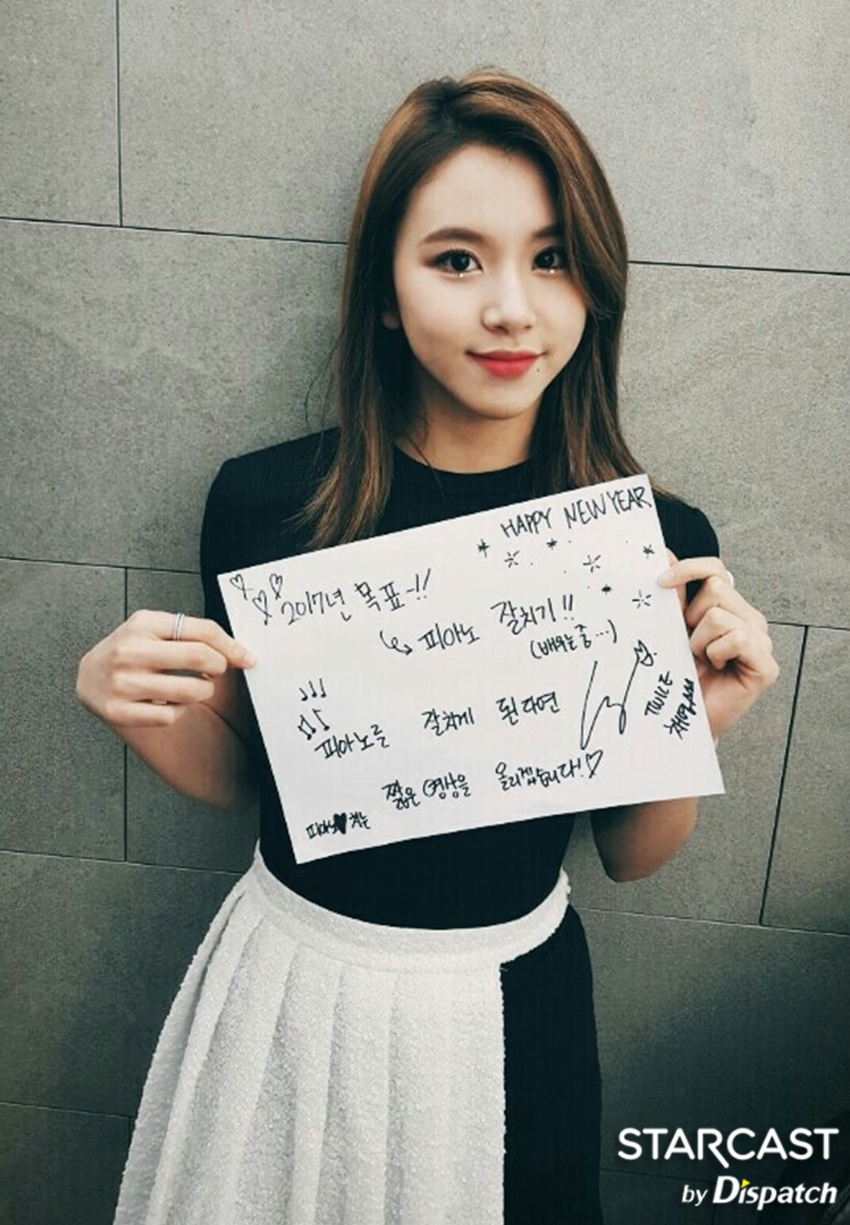 HAPPY NEW YEAR
2017년 목표~!!
피아노 잘치기!!
(배우는 중...)
피아노를 잘치게 된다면
짧은 영상을 올리겠습니다!♡
피아노♥치는
TWICE
채영
STARCAST
by Dispatch